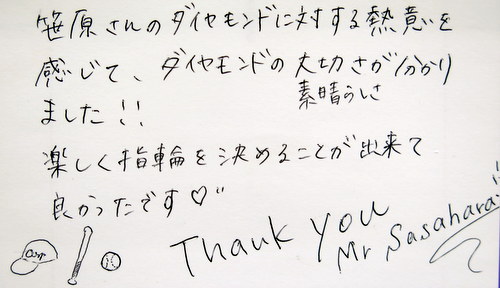 笹原さんのダイヤモンドに対する熱意を
感じて、ダイヤモンドの大切さが分かり
素晴らしさ
ました!!
楽しく指輪を決めることが出来て
良かったです♡"
Thank you
Mr Sasahara!!